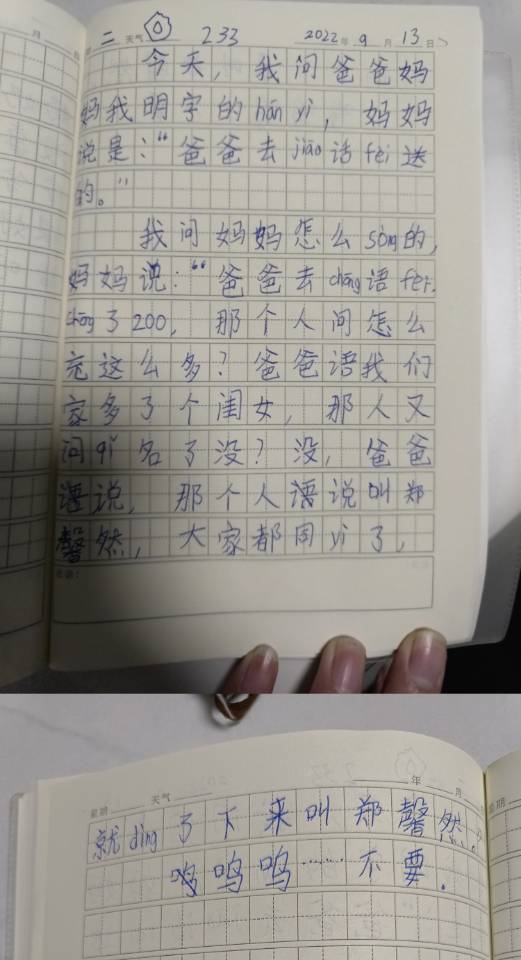 月
二 天气 233 2022年9月13日
今天，我问爸爸妈
妈我明字的hán yì，妈妈
说是：“爸爸去jiāo话fèi送
的。”
我问妈妈怎么sòng的，
妈妈说：“爸爸去chōng语fèi，
chōng了200，那个人问怎么
充这么多？爸爸语我们
家多了个闺女，那人又
问qǐ名了没？没，爸爸
语说，那个人语说叫郑
馨然，大家都同yì了，
星期 天气 年 月
就dìng了下来叫郑馨然。
呜呜呜……不要.
星期